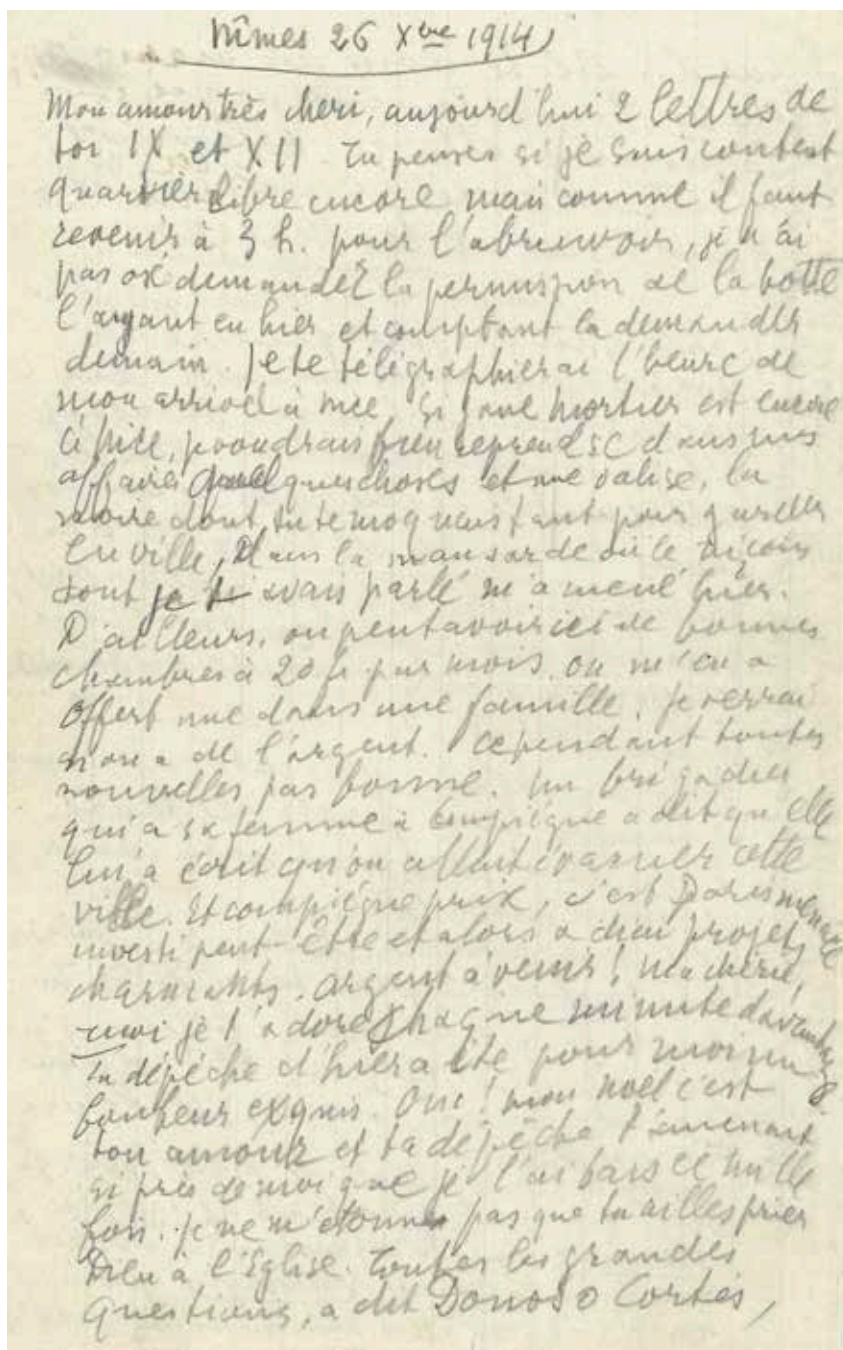 Nîmes 26 Xbre 1914
Mon amour très cheri, aujourd'hui 2 lettres de
toi IX et XII Tu penses si je suis content
quartier libre encore mais comme il faut
revenir à 3 h. pour l'abreuvoir, je n'ai
pas osé demander la permission de la botte
l'ayant eu hier et comptant la demander
demain. Je te télégraphierai l'heure de
mon arrivée à Nice. Si Jane Mortier est encore
à Nice, je voudrais bien reprendre dans mes
affaires quelques choses et une valise, la
noire dont tu te moquais tant pour garder
en ville, Dans la mansarde où le
dont je t'avais parlé m'a mené hier.
D'ailleurs, on peut avoir ici de bonnes
chambres à 20 fr par mois. on m'en a
offert une dans une famille, je verrai
si on a de l'argent. Cependant toutes
nouvelles pas bonnes. Un brigadier
qui a sa femme à Compiègne a dit qu'elle
lui a écrit qu'on allait évacuer cette
ville. Et Compiègne prix, c'est Paris menacé
investi peut-être et alors adieu projets
charmants. argent à venir ! Ma chérie,
moi je t'adore chaque minute davantage.
Ta dépêche d'hier a été pour moi un
bonheur exquis. Oui ! mon noël c'est
ton amour et ta dépêche t'amenant
si près de moi que je l'ai baisée mille
fois. je ne m'étonne pas que tu ailles prier
Dieu à l'Eglise. Toutes les grandes
questions, a dit Donoso Cortès,